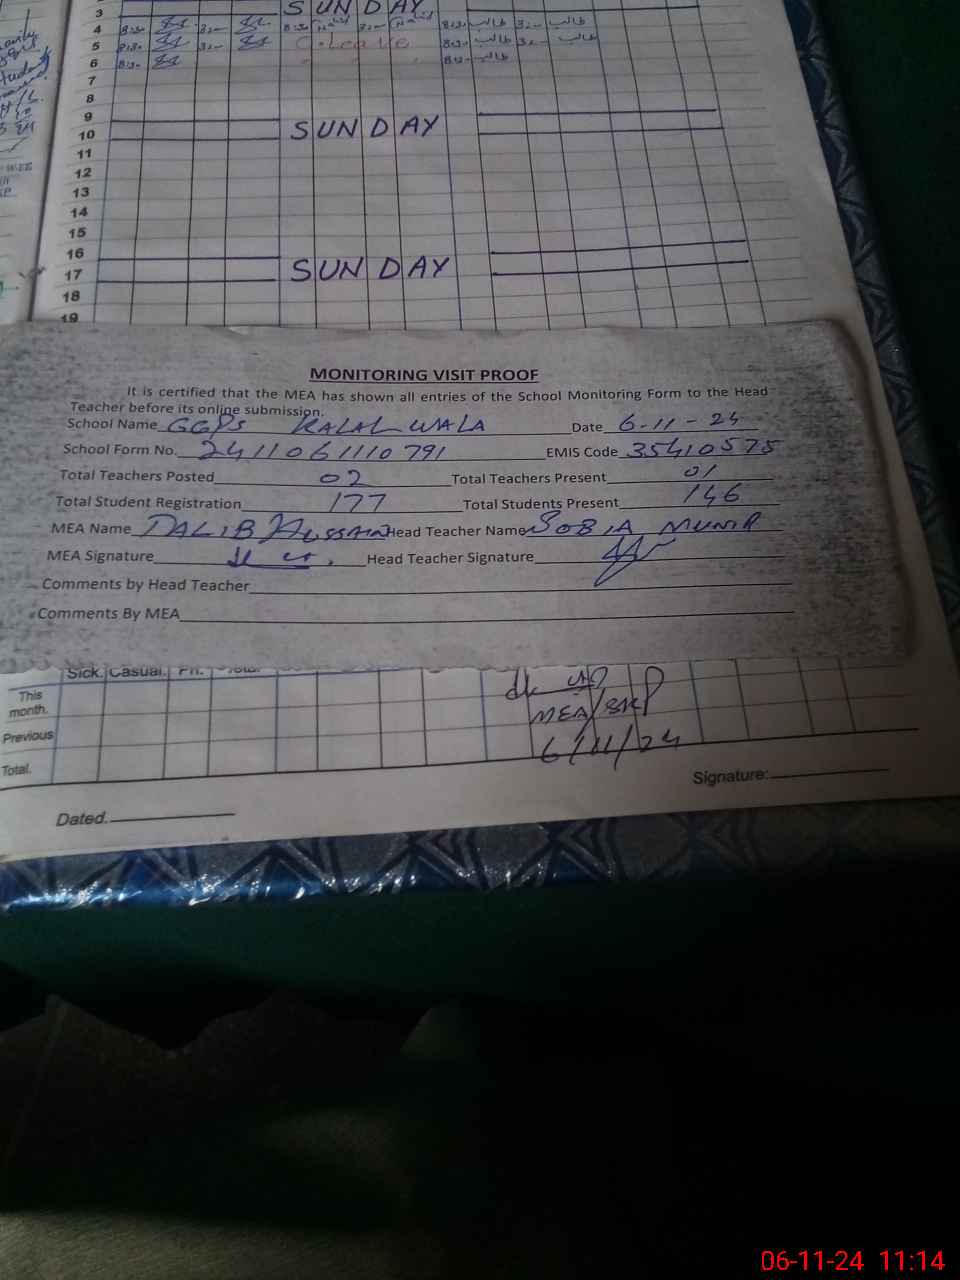 3 SUNDAY
4 8:30 3:00 8:30 3:00 8:30 طالب 3:00 طالب
5 8:30 3:00 C-Leave 8:30 طالب 3:00 طالب
6 8:30 8:30 طالب
7
8
9
10 SUNDAY
11
12
13
14
15
16
17 SUNDAY
18
19
MONITORING VISIT PROOF
It is certified that the MEA has shown all entries of the School Monitoring Form to the Head
Teacher before its online submission.
School Name GGPS KALAL WALA Date 6-11-24
School Form No. 2411061110791 EMIS Code 35410575
Total Teachers Posted 02 Total Teachers Present 01
Total Student Registration 177 Total Students Present 146
MEA Name TALIB Hussain Head Teacher Name SOBIA MUNIR
MEA Signature Head Teacher Signature
Comments by Head Teacher
Comments By MEA
Sick. Casual. Pri. Total.
This month.
MEA/SKP
Previous
6/11/24
Total.
Signature:
Dated.
06-11-24 11:14